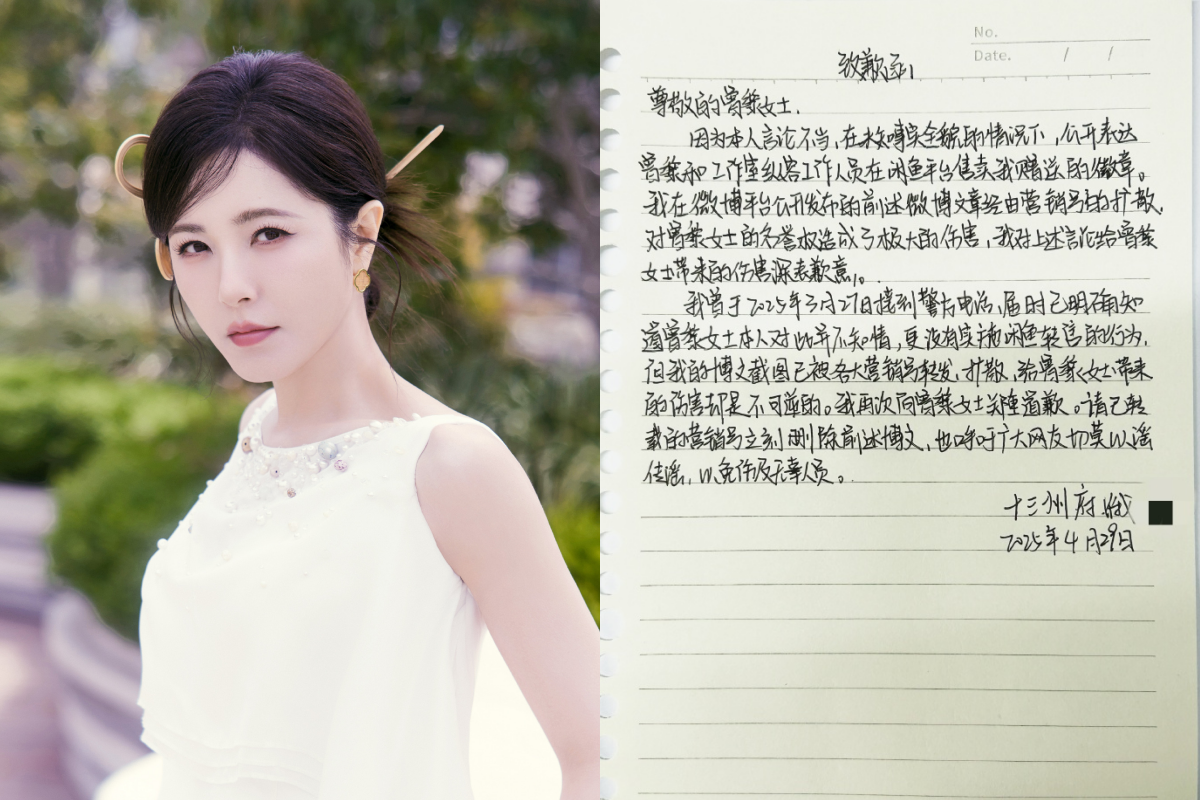 No.
Date. / /
致歉函
尊敬的曾黎女士.
因为本人言论不当，在未知事实全貌的情况下，公开表达
曾黎和工作室纵容工作人员在闲鱼平台售卖我赠送的徽章。
我在微博平台公开发布的前述微博文章经由营销号的扩散，
对曾黎女士的名誉权造成了极大的伤害，我对上述言论给曾黎
女士带来的伤害深表歉意。
我曾于2025年3月27日接到警方电话，届时已明确知
道曾黎女士本人对此并不知情，更没有实施闲鱼转售的行为，
但我的博文截图已被各大营销号转发、扩散，给曾黎女士带来
的伤害却是不可逆的。我再次向曾黎女士道歉。请已转
载的营销号立刻删除前述博文，也呼吁广大网友切莫以谣
传谣，以免伤及无辜人员。
十三州府
2025年4月29日